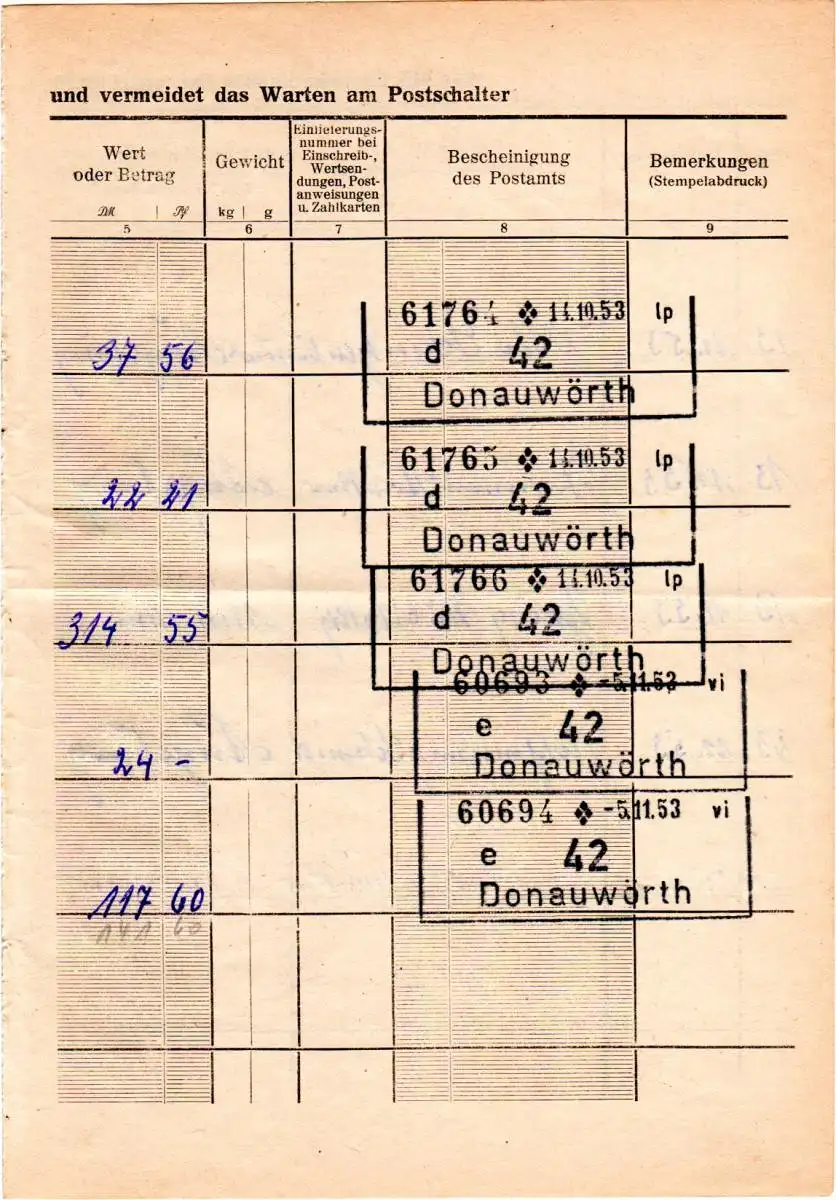 und vermeidet das Warten am Postschalter
Wert
oder Betrag
DM | Pf
5
Gewicht
kg | g
6
Einlieferungs-
nummer bei
Einschreib-,
Wertsen-
dungen, Post-
anweisungen
u. Zahlkarten
7
Bescheinigung
des Postamts
8
Bemerkungen
(Stempelabdruck)
9
37 56
61764 14.10.53 lp
d 42
Donauwörth
22 21
61765 14.10.53 lp
d 42
Donauwörth
314 55
61766 14.10.53 lp
d 42
Donauwörth
24 -
60693 -5.11.53 vi
e 42
Donauwörth
117 60
141 60
60694 -5.11.53 vi
e 42
Donauwörth